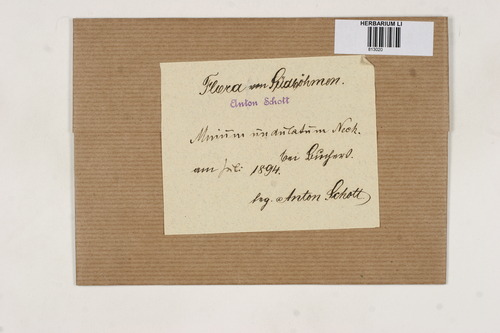 HERBARIUM LI
813020
Flora von Südböhmen.
Anton Schott
Mnium undulatum Neck.
bei Buchers.
am Juli 1894.
leg. Anton Schott